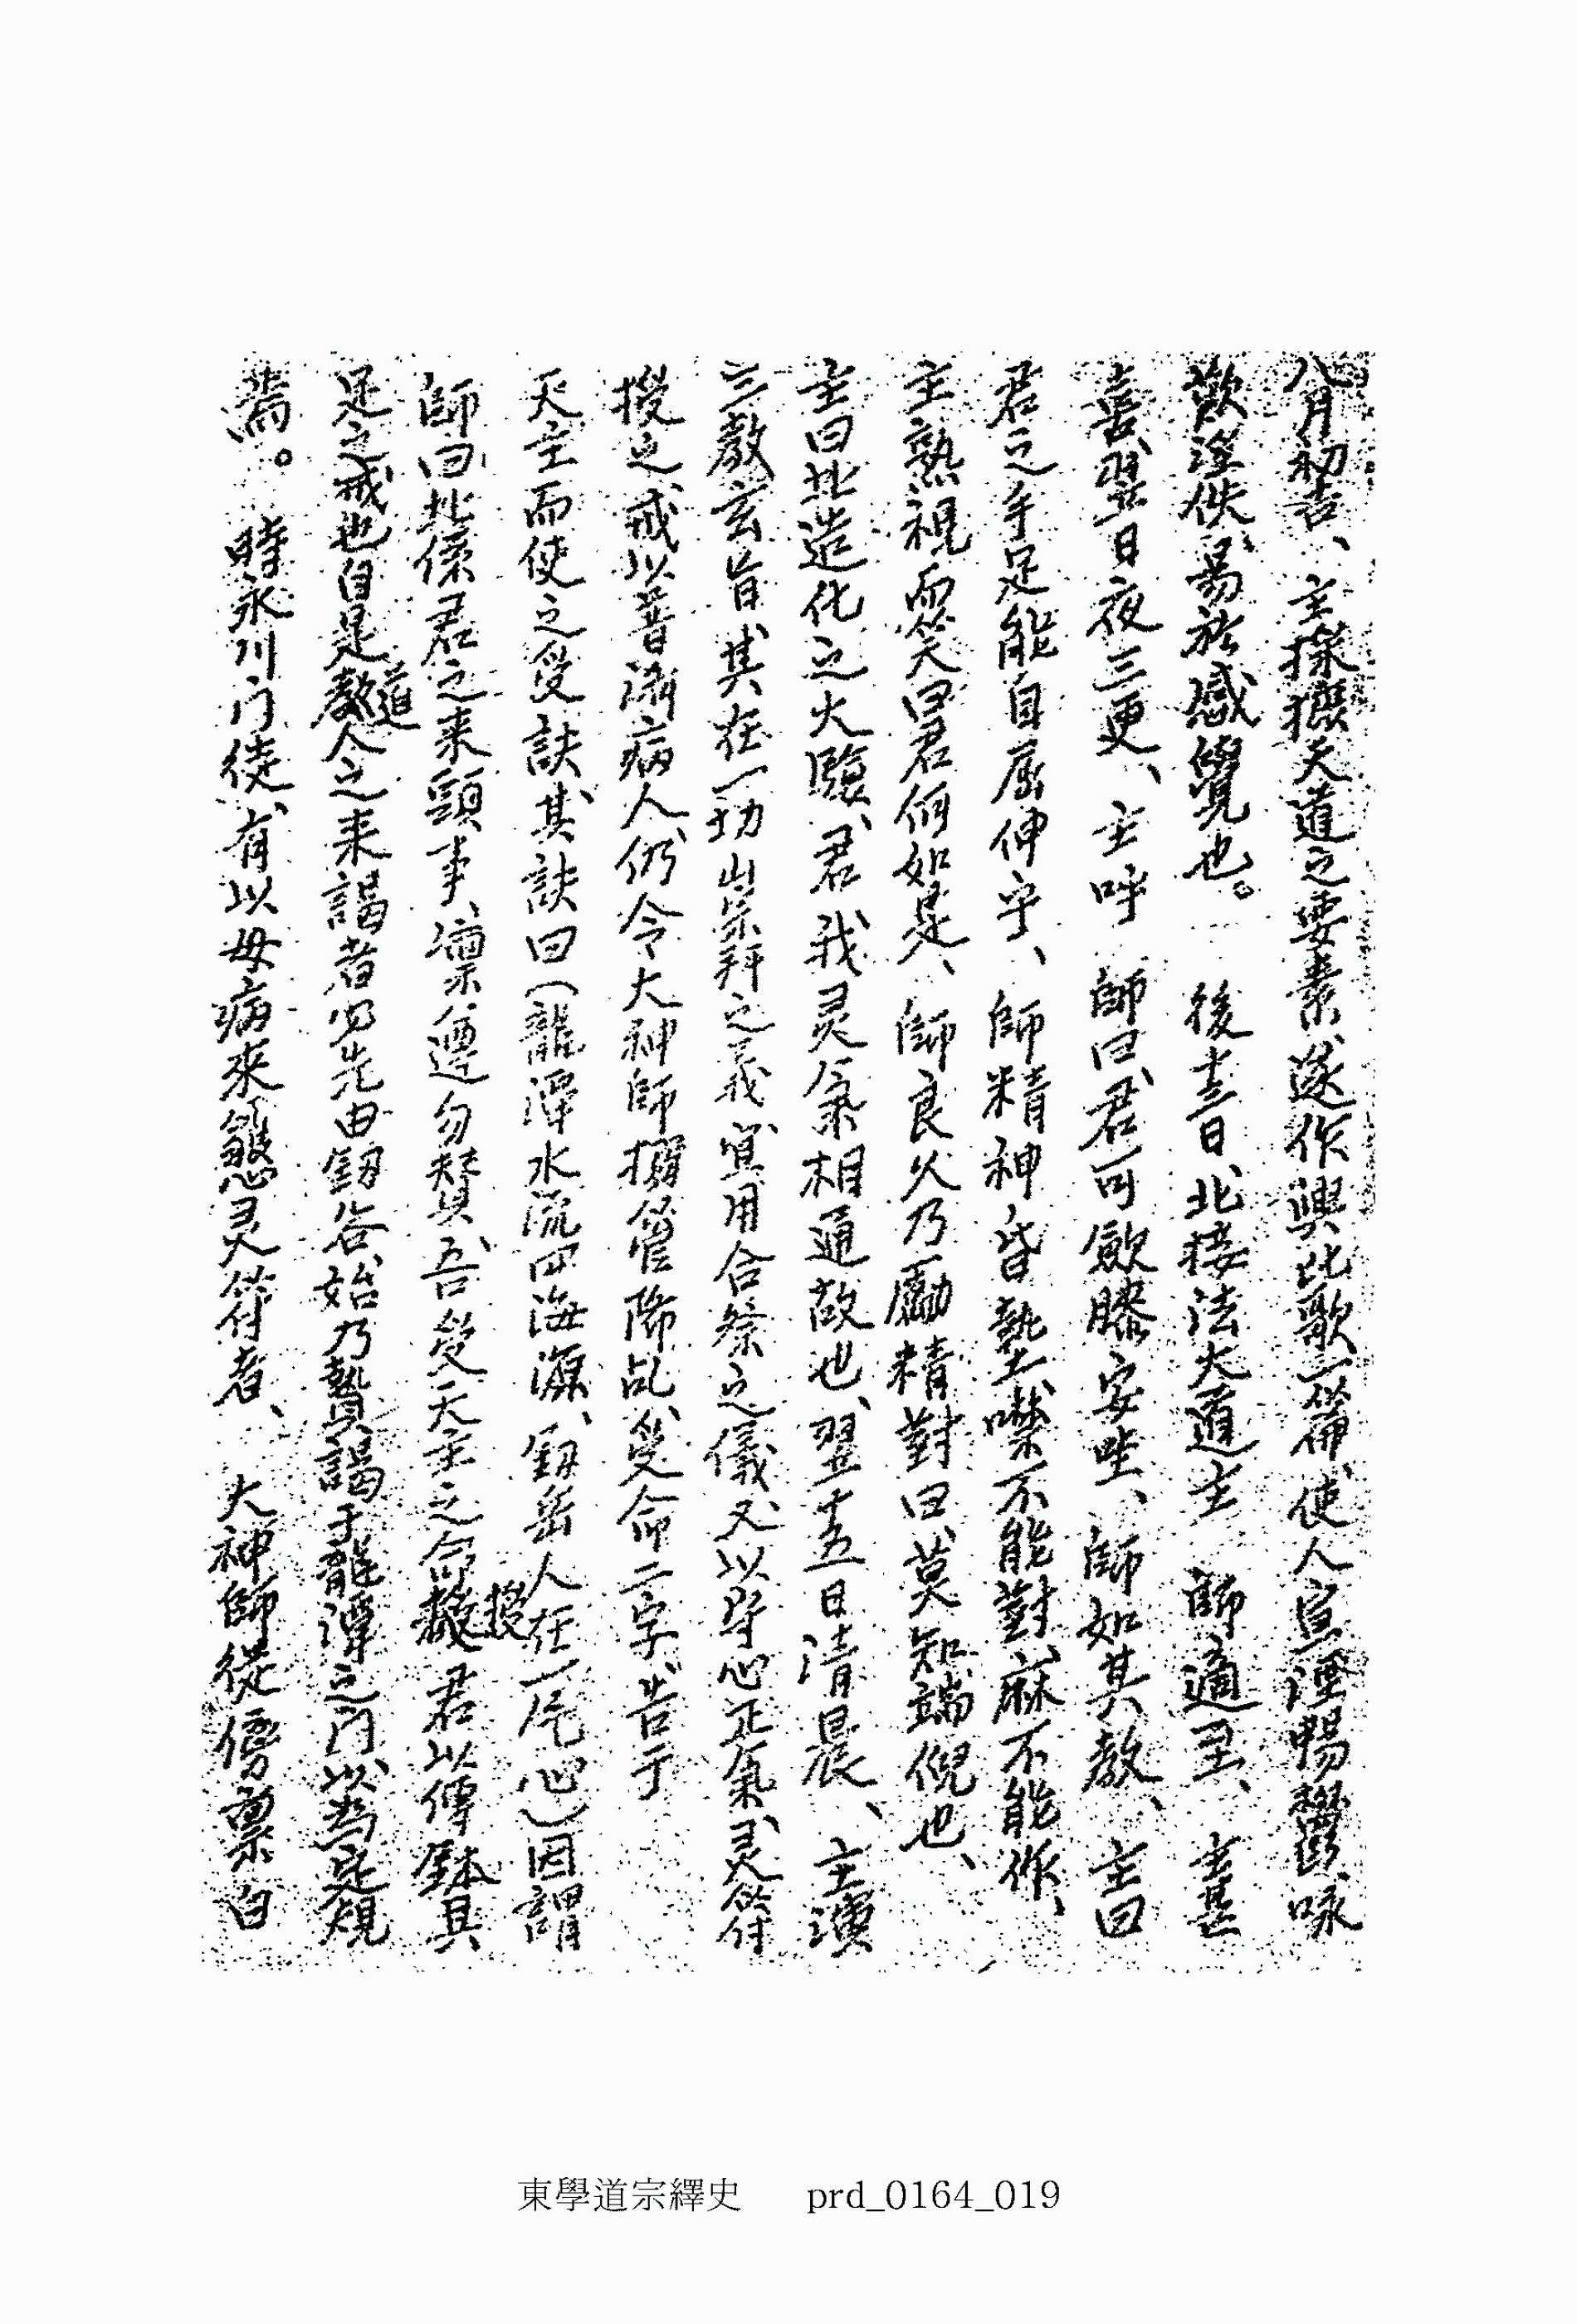 八月初吉、主採掇天道之要素、遂作興比歌一篇、使人宣湮暢鬱、咏
歎淫佚、易於感覺也。後十三日、北接法大道主 師適至、主甚
喜、翌日夜三更、主呼 師曰、君可斂膝安坐、師如其敎、主曰
君之手足能自屈伸乎、師精神昏墊、噤不能對、麻不能作、
主熟視而笑曰君何如是、師良久乃勵精對曰、莫知端倪也、
主曰此造化之大驗、君我灵氣相通故也、翌十五日淸晨、主演
三敎玄旨、其在一切崇拜之義、宜用合祭之儀、又以守心正氣、灵符
授之、戒以普濟病人、仍令大神師擱管降乩、受命二字、告于
天主而使之受訣、其訣曰(龍潭水流四海源、釼岳人在一片心)因謂
師曰此係君之來頭事、凜遵勿替、吾受天主之命、授君以傳鉢、其
足之戒也、自是敎道人之來謁者、必先由釼谷、始乃贄謁于龍潭之門、以爲定規
焉。時永川门徒、有以母病來懇灵符者、大神師從傍稟白
東學道宗繹史 prd_0164_019